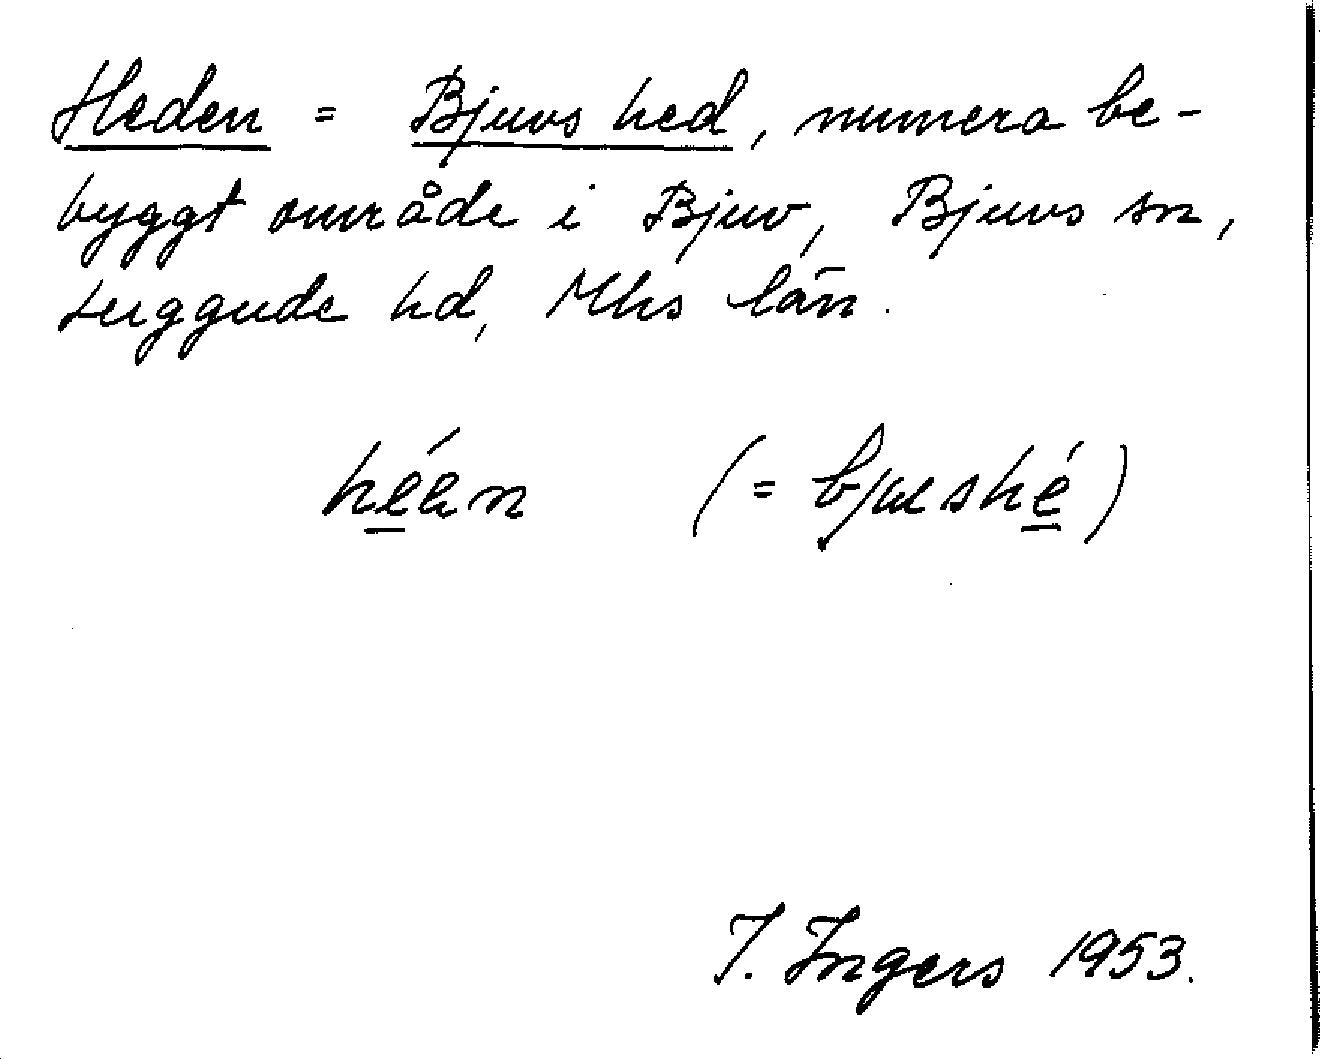 Heden = Bjuvs hed, numera be-
byggt område i Bjuv, Bjuvs sn,
Luggude hd, Mhs län.
héen (= bjushé)
I. Ingers 1953.